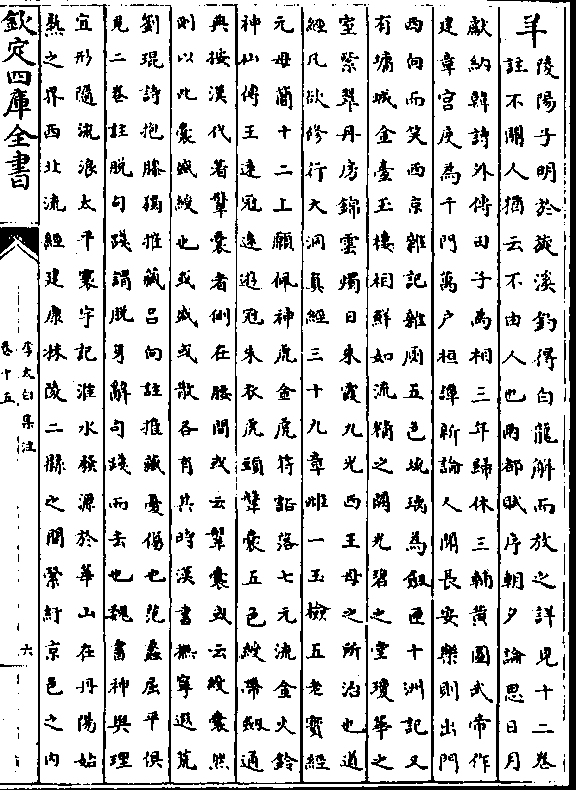 羊
陵陽子明於旋溪釣得白龍解而放之詳見十二卷
註不關人猶云不由人也兩都賦序朝夕論思日月
獻納韓詩外傳田子為相三年歸休三輔黄圖武帝作
建章宫度為千門萬户桓譚新論人聞長安樂則出門
西向而笑西京雜記雜厠五色琉璃為劔匣十洲記又
有墉城金臺玉樓相鮮如流精之闕光碧之堂瓊華之
室紫翠丹房錦雲燭日朱霞九光西王母之所治也道
經凡欲修行大洞真經三十九章雌一玉檢五老寶經
元母簡十二上願佩神虎金虎符豁落七元流金火鈴
神仙傳王遠冠遠遊冠朱衣虎頭鞶囊五色綬帶劔通
典按漢代著鞶囊者側在腰間或云鞶囊或云綬囊然
則以此囊盛綬也或盛或散各有其時漢書撫寧遐荒
劉琨詩抱膝獨摧藏吕向註摧藏憂傷也范蠡屈平俱
見二卷註脱句踐謂脱身辭句踐而去也魏書神與理
宜形隨流浪太平寰宇記淮水發源於華山在丹陽姑
熟之界西北流經建康秣陵二縣之間縈紆京邑之内
欽定四庫全書
李太白集注
卷十五
六